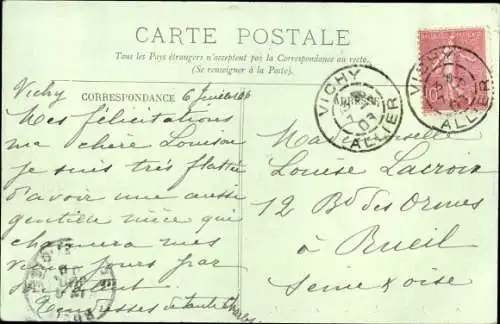 CARTE POSTALE
Tous les Pays étrangers n'acceptent pas la Correspondance au recto.
(Se renseigner à la Poste).
CORRESPONDANCE
Vichy 6 Juillet
Mes félicitations
ma chère Louison
je suis très flattée
d'avoir une aussi
gentille nièce qui
charmera mes
vieux jours par
son talent
Tendresses
Mademoiselle
Louise Lacroix
12 Bd des Ormes
à Rueil
Seine & Oise
VICHY
ALLIER
03
VICHY
ALLIER
10